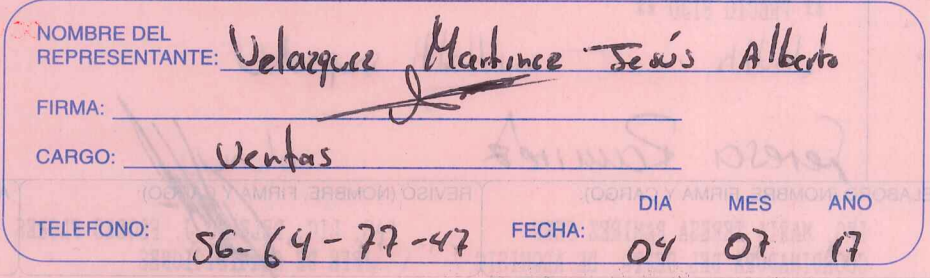 NOMBRE DEL
REPRESENTANTE: Velazquez Martinez Jesús Alberto
FIRMA:
CARGO: Ventas
DIA MES AÑO
TELEFONO: 56-64-77-47 FECHA: 04 07 17